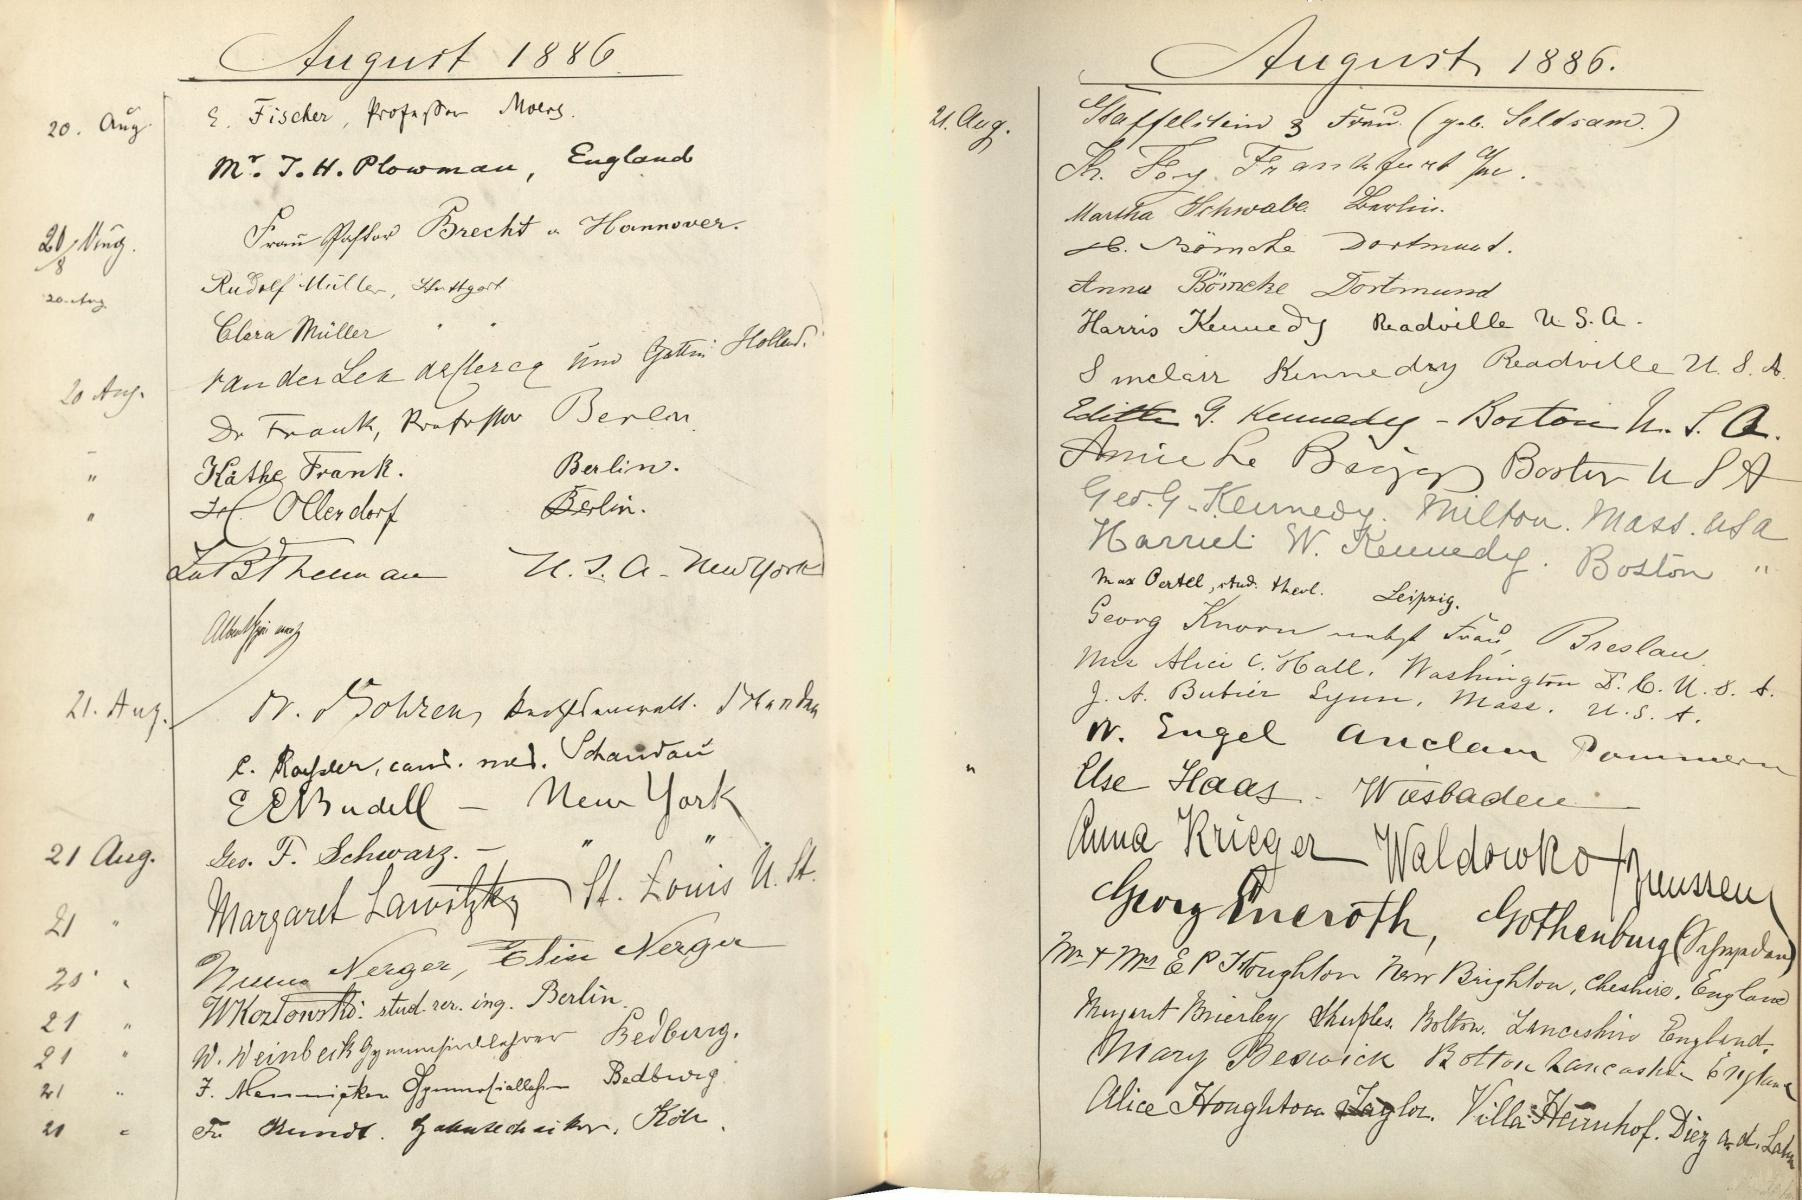 August 1886
20. Aug. E. Fischer, Professor Moers.
Mr. T. H. Plowman, England
21/8 Aug. Frau Pastor Brecht a Hannover.
20. Aug. Rudolf Müller, Stuttgart
Clara Müller " "
20 Aug. van der Lek und Gattin Holland.
Dr Frank, Professor Berlin.
" Käthe Frank. Berlin.
" H. Ollendorf Berlin.
U. S. A - New York
21. Aug. Dr.
cand. med. Schandau
E E Budell — New York
21 Aug. Geo. F. Schwarz. — " "
21 " Margaret Lawitzky St. Louis U. St.
20 " Nerger, Elise Nerger
21 " W Kozlowski stud. rer. ing. Berlin.
21 " W. Weinbeck Gymnasiallehrer Bedburg.
21 " F. Gymnasiallehrer Bedburg
21 " Fr. Köln.
August 1886.
21. Aug. Staffelstein & Frau. (geb. Seldsam.)
Th. Fey Frankfurt a/m.
Martha Schwabe Berlin.
H. Bömcke Dortmund.
Anna Bömcke Dortmund
Harris Kennedy Readville U. S. A.
Sinclair Kennedy Readville U. S. A.
Edith G. Kennedy - Boston U. S. A.
Annie Le Boston U S A
Geo. G. Kennedy. Milton. Mass. USA
Harriet W. Kennedy. Boston "
Max Oertel, stud. theol. Leipzig.
Georg Knorn nebst Frau, Breslau.
Mrs Alice C. Hall. Washington D. C. U. S. A.
J. A. Bubier Lynn, Mass. U. S. A.
W. Engel Anclam Pommern
" Else Haas - Wiesbaden
Anna Krieger Waldowko / Preussen
Georg Eneroth, Gothenburg (Schweden)
Mr & Mrs E P Houghton New Brighton, Cheshire, England
Margaret Brierley Bolton. Lancashire England.
Mary Beswick Bolton Lancashire England
Alice Houghton Taylor. Villa Heimhof. Diez a. d. Lahn